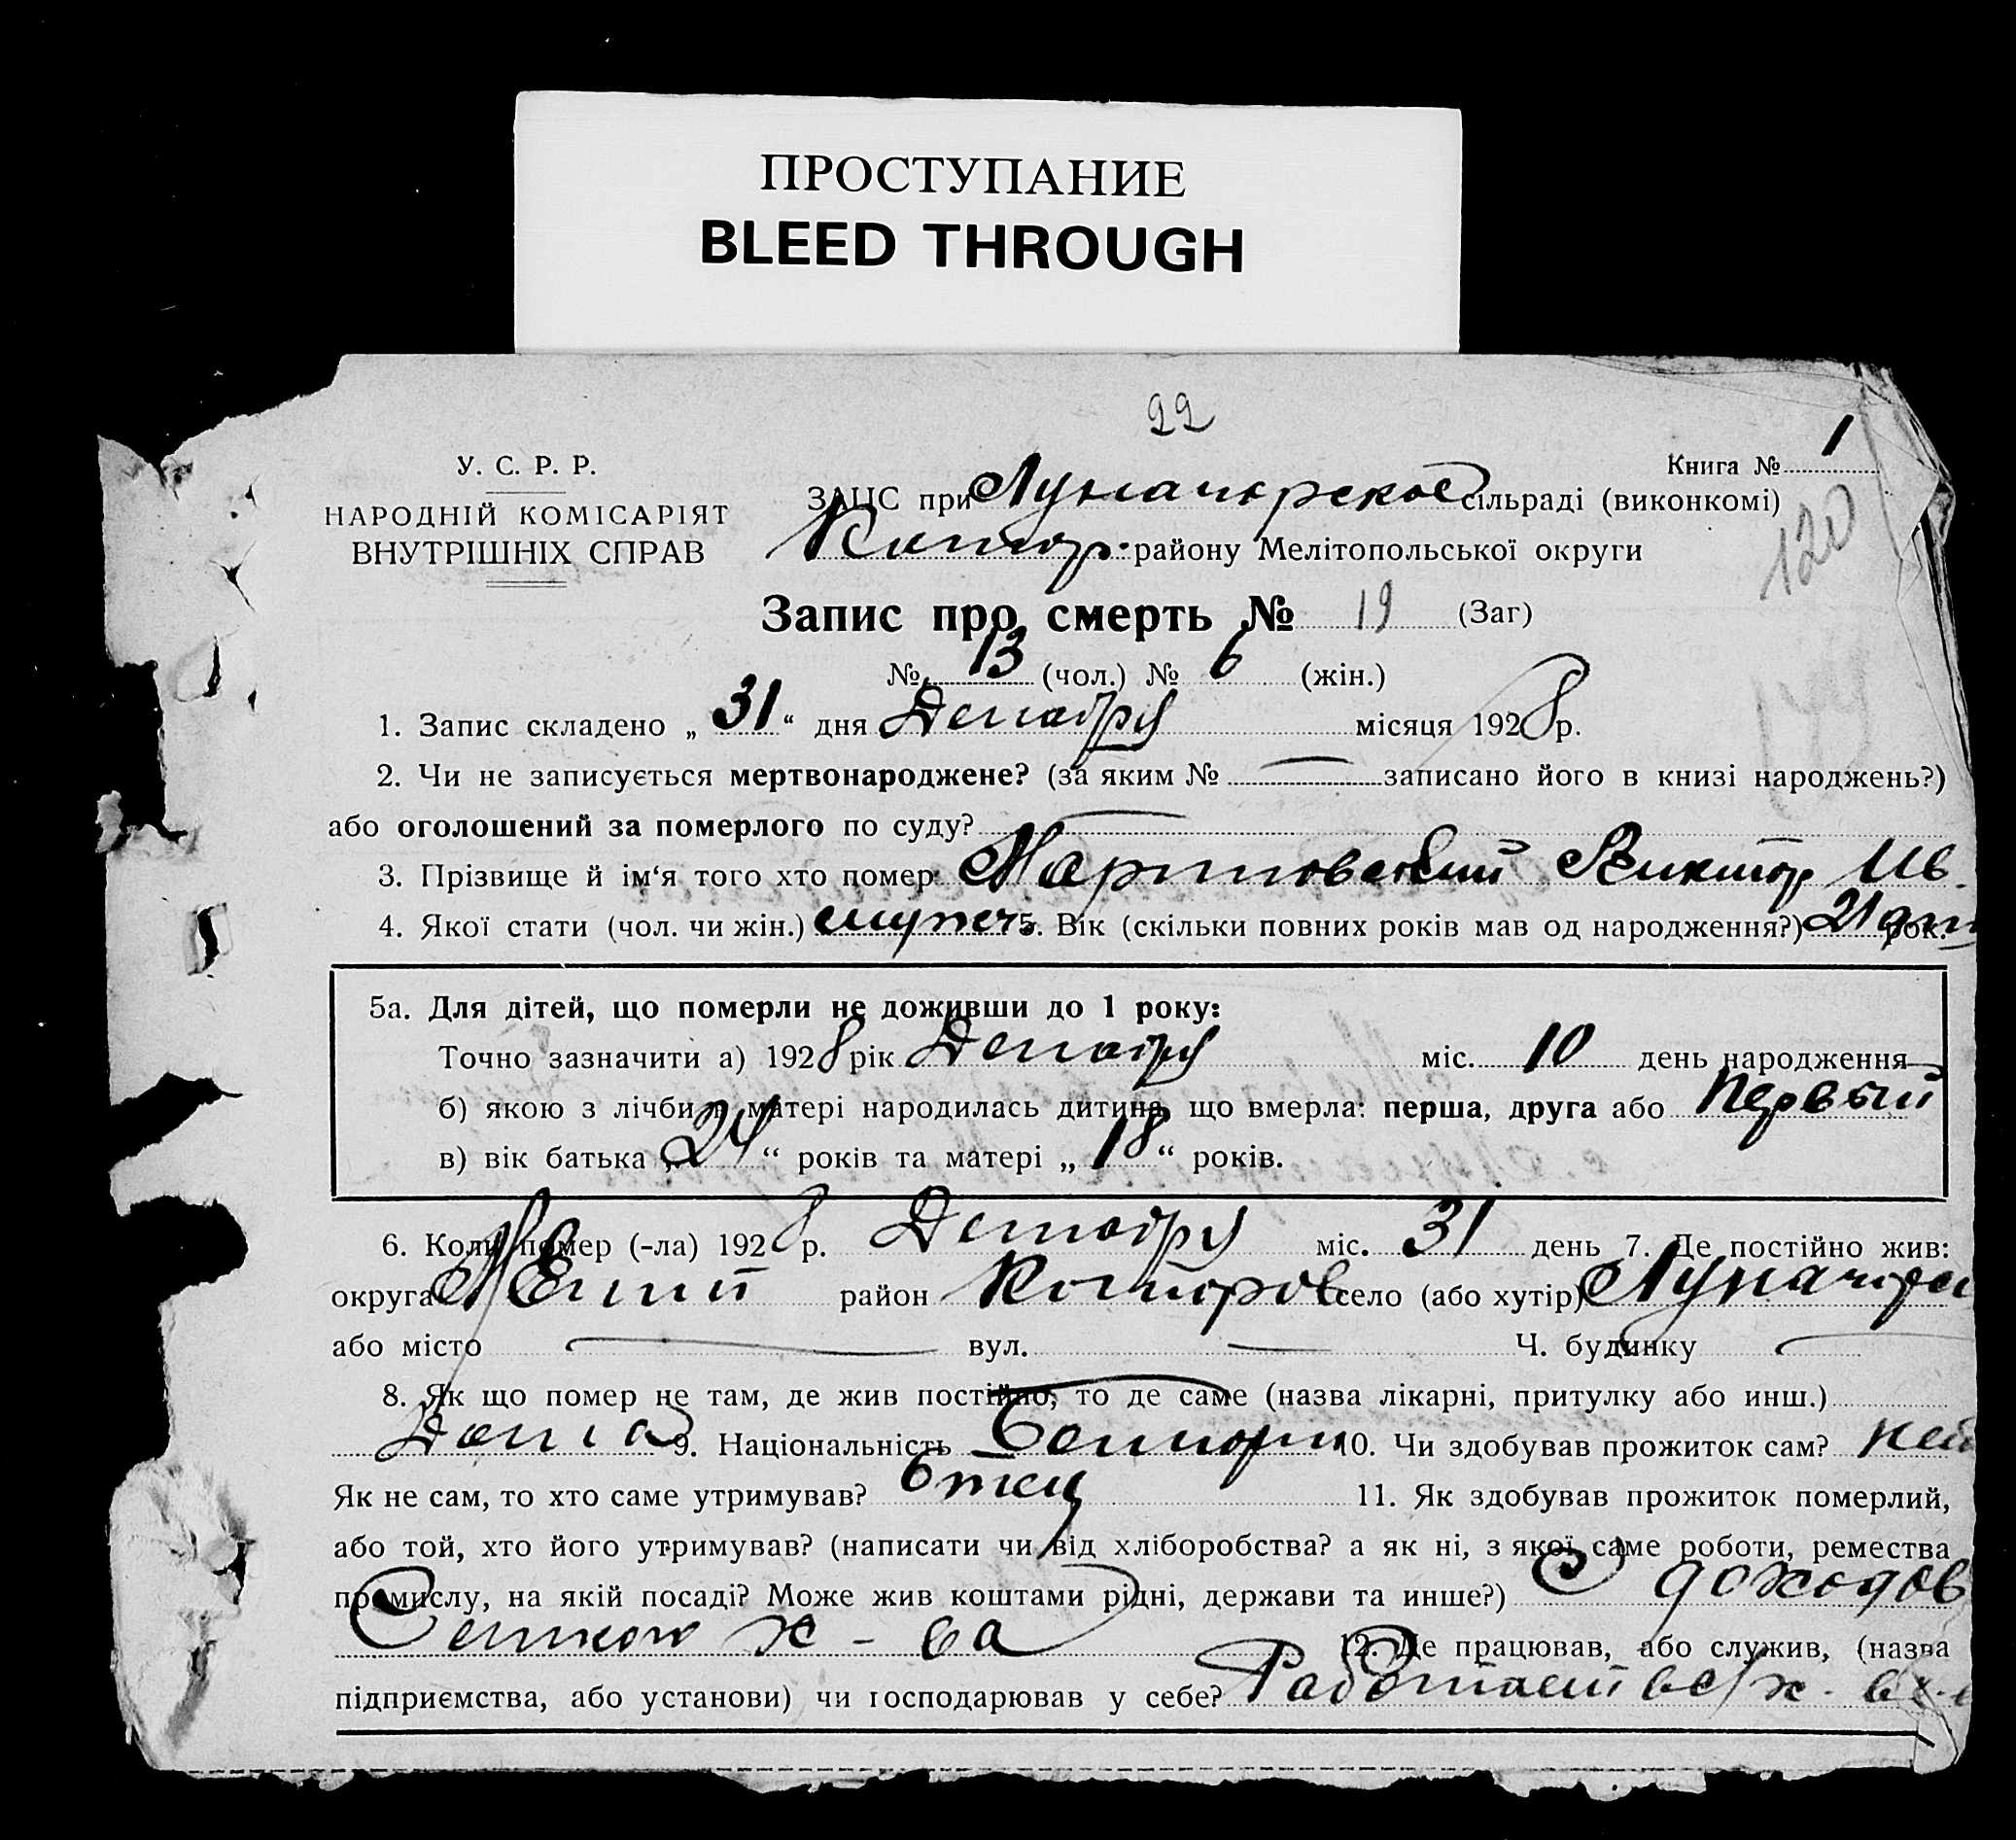 ПРОСТУПАНИЕ
BLEED THROUGH
22
У. С. Р. Р.
Книга № 1
НАРОДНІЙ КОМІСАРІЯТ
ЗАЦС при Луначарское сільраді (виконкомі)
120
ВНУТРІШНІХ СПРАВ
району Мелітопольської округи
Запис про смерть № 19 (Заг)
№ 13 (чол.) № 6 (жін.)
1. Запис складено „ 31 “ дня Декабря місяця 1928 р.
2. Чи не записується мертвонароджене? (за яким № — записано його в книзі народжень?)
або оголошений за померлого по суду? —
3. Прізвище й ім‘я того хто помер Мартновский Виктор Ив.
4. Якої стати (чол. чи жін.) мужск 5. Вік (скільки повних років мав од народження?) 21 дня рок.
5а. Для дітей, що померли не доживши до 1 року:
Точно зазначити а) 1928 рік Декабря міс. 10 день народження
б) якою з лічби в матері народилась дитина, що вмерла: перша, друга або первый
в) вік батька „ 24 “ років та матері „ 18 “ років.
6. Коли помер (-ла) 1928 р. Декабря міс. 31 день 7. Де постійно жив:
округа район село (або хутір) Луначарс
або місто — вул. — Ч. будинку —
8. Як що помер не там, де жив постійно, то де саме (назва лікарні, притулку або инш.)
Дома 9. Національність 10. Чи здобував прожиток сам? нет
Як не сам, то хто саме утримував? Отец 11. Як здобував прожиток померлий,
або той, хто його утримував? (написати чи від хліборобства? а як ні, з якої саме роботи, ремества
промислу, на якій посаді? Може жив коштами рідні, держави та инше?) С доходов
Сельского х-ва 12. Де працював, або служив, (назва
підприємства, або установи) чи господарював у себе? Работает в с/х.